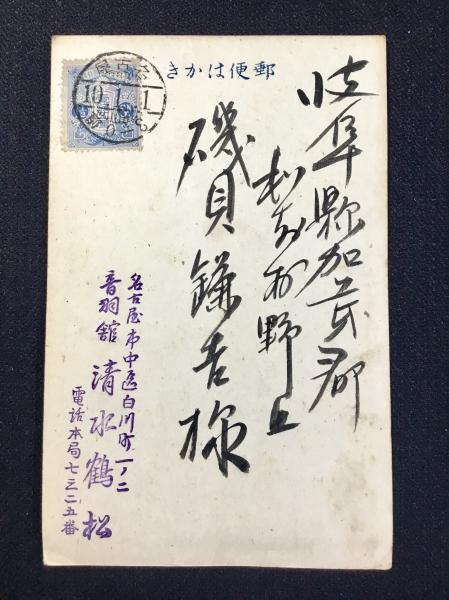 郵便はかき
岐阜縣加茂郡
野上
磯貝鎌吉様
名古屋市中區白川町一ノ二
音羽舘 清水鶴松
電話本局七三二五番
名古屋
10.1.1